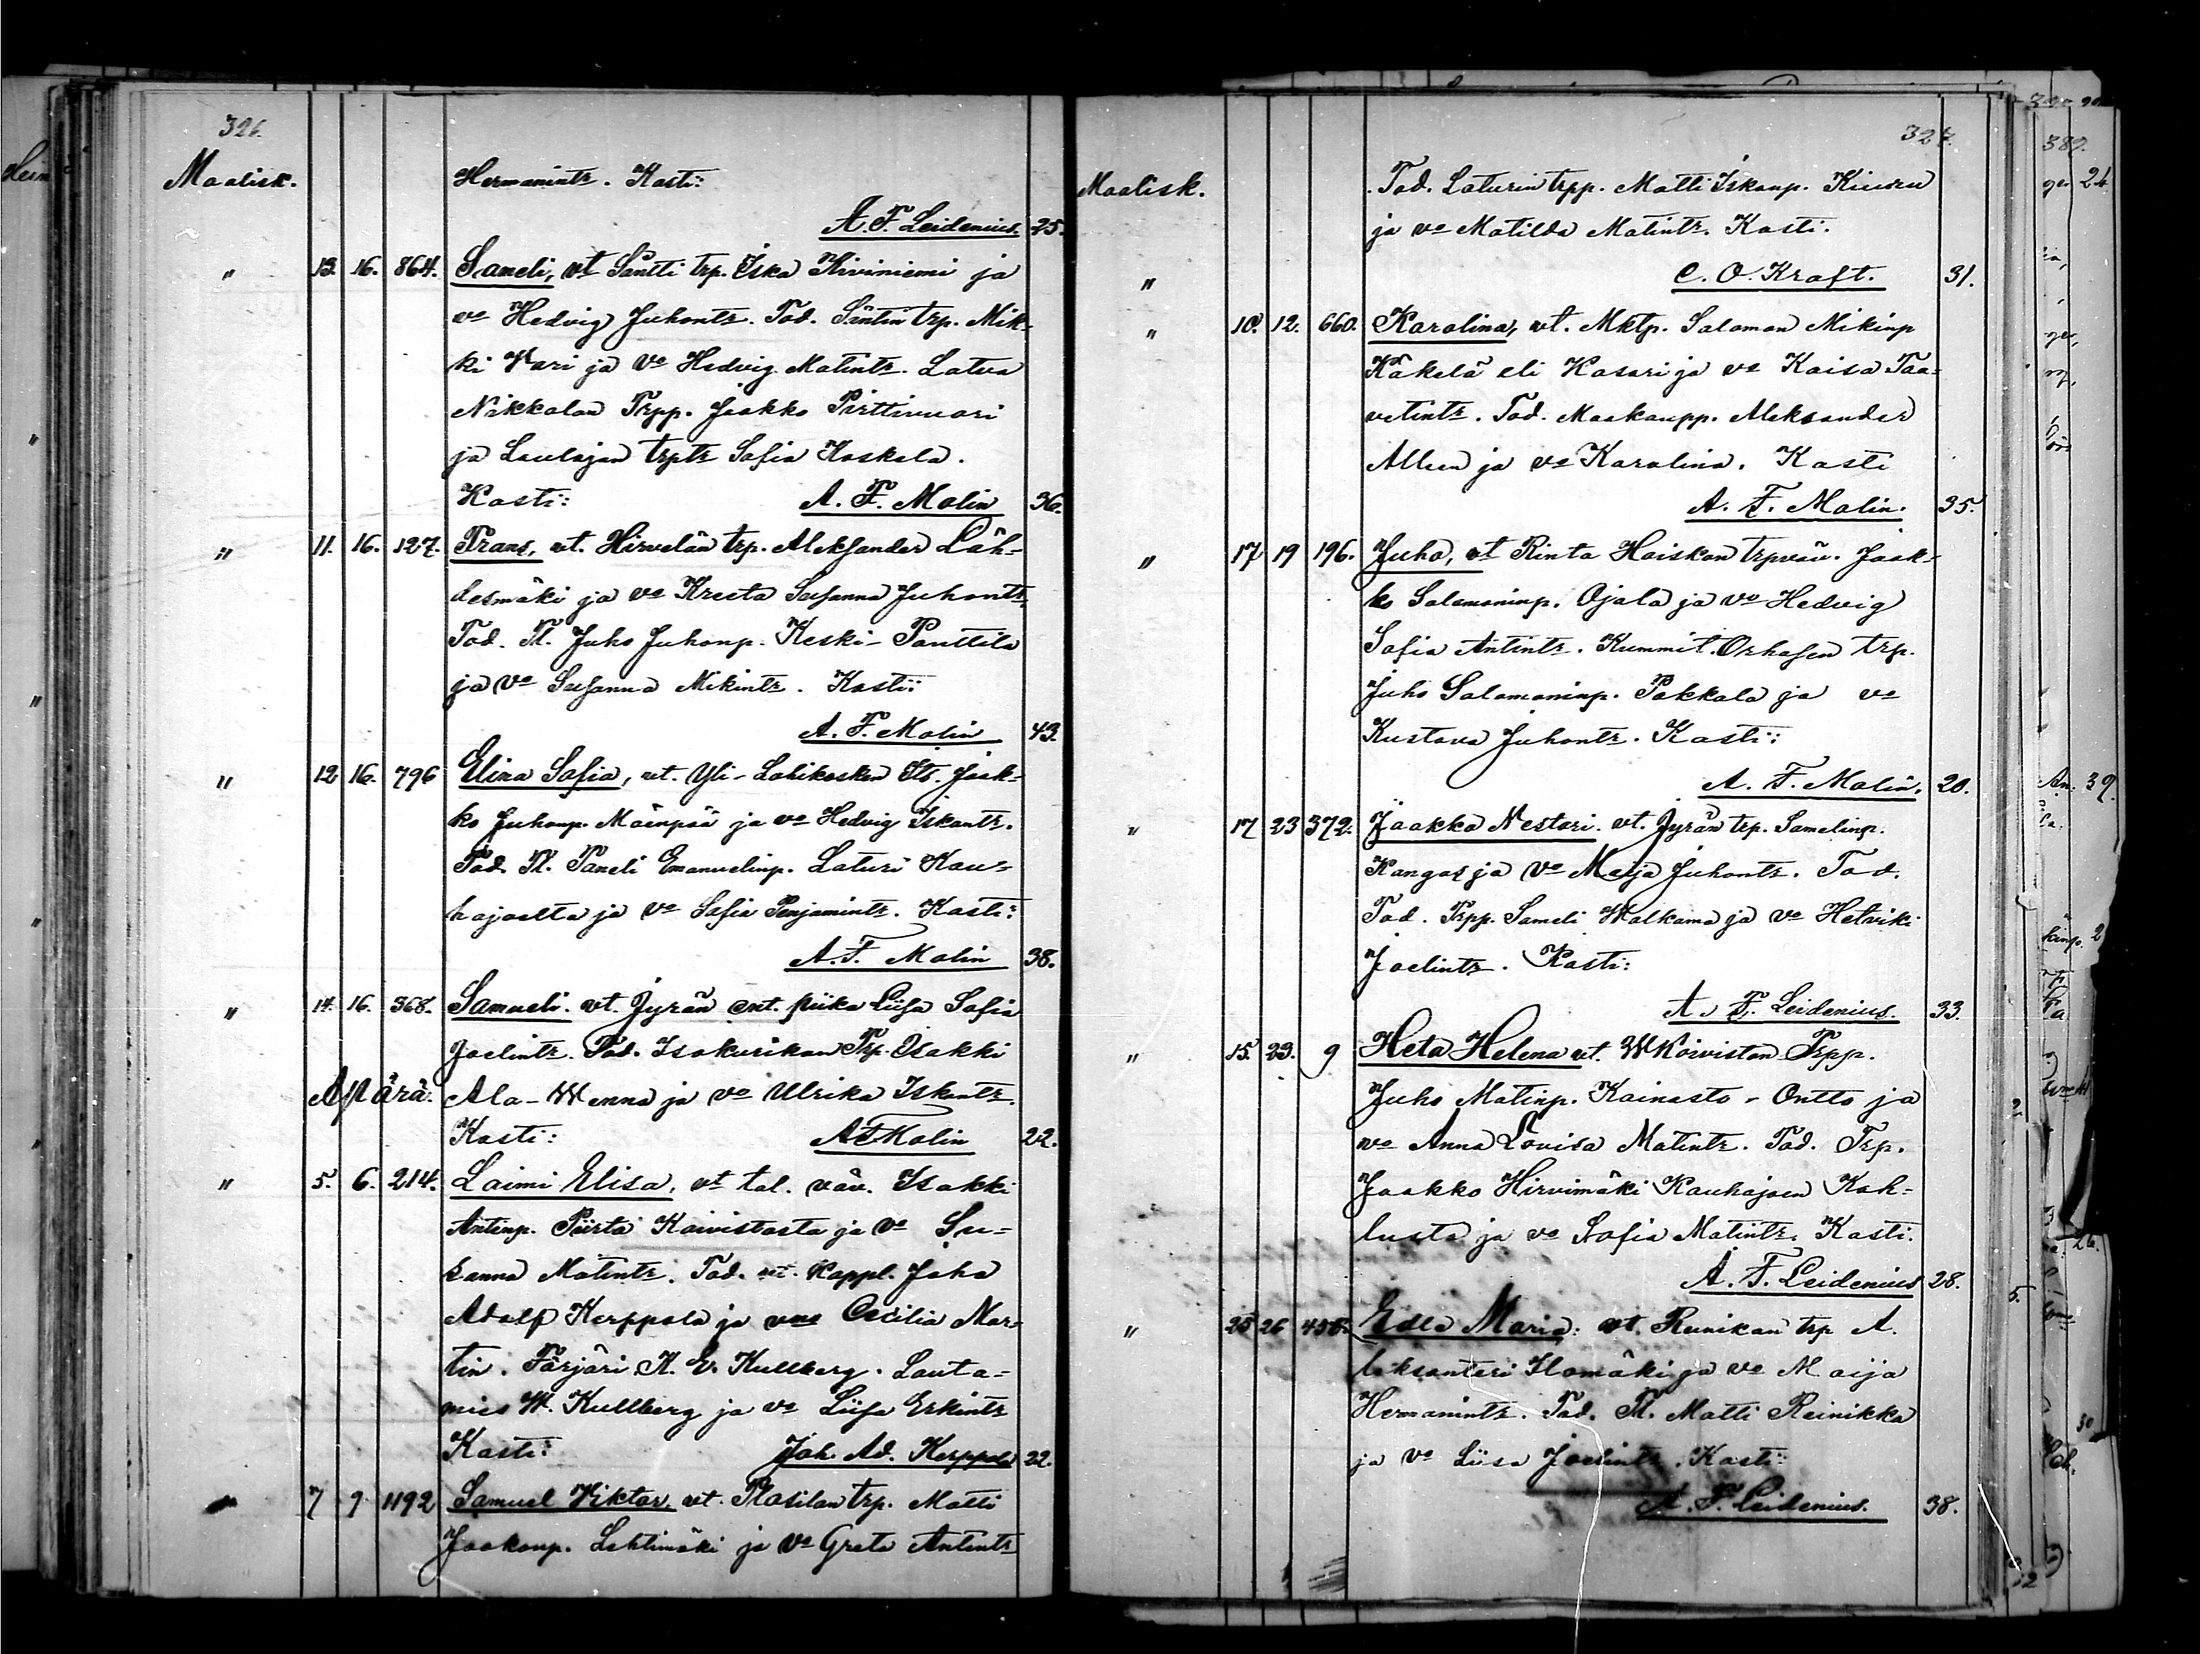 326.
Maalisk.
Hermanintr. Kasti:
A. F. Leidenius. 25.
" 13. 16. 864. Sameli, vt Säntti trp. Iska Kiviniemi ja
va Hedvig Juhontr. Tod. Säntin trp. Mik-
ki Wari ja Va Hedvig Matintr. Latva
Nikkolan Trpp. Jaakko Pirttivuori
ja Laulajan trptr Sofia Koskela.
Kasti: A. F. Malin 36.
" 11. 16. 127. Frans, vt. Hirvelän trp. Aleksander Läh-
desmäki ja va Kreeta Susanna Juhontr.
Tod. Tl. Juho Juhonp. Keski-Panttila
ja Va Susanna Mikintr. Kasti:
A. F. Malin 43.
" 12 16. 796 Elina Sofia, vt. Yli-Lohikosken Its. Jaak-
ko Juhonp. Mäenpää ja va Hedvig Iskantr.
Tod. Tl. Taneli Emanuelinp. Laturi Kau-
hajoelta ja Va Sofia Penjamintr. Kasti:
A. F. Malin 38.
" 14. 16. 368. Samueli. vt. Jyrän ent. piika Liisa Sofia
Joelintr. Tod. Isokurikan Trp. Isakki
Ala-Wenna ja va Ulrika Iskantr.
Kasti: A F Malin 22.
" 5. 6. 214. Laimi Elisa, vt tal. väv. Isakki
Antinp. Piirto Koivistosta ja Va Su-
sanna Matintr. Tod. vt. Kappl. Joha
Adolf Kerppola ja vna Cecilia Mar-
tin. Färjäri K. E. Kullberg. Lauta-
mies W. Kullberg ja va Liisa Erkintr
Kasti: Joh. Ad. Kerppola 22.
7 9 1192 Samuel Viktor, vt. Plosilan trp. Matti
Jaakonp. Lehtimäki ja Va Greta Antintr
327.
Maalisk.
Tod. Laturin trpp. Matti Iskanp.
ja va Matilda Matintr. Kasti.
" C. O. Kraft. 31.
" 10. 12. 660. Karolina, vt. Mktp. Salomon Mikinp
Käkelä eli Kasari ja va Kaisa Taa-
vetintr. Tod. Maakaupp. Aleksander
Alleen ja va Karolina. Kasti
A. F. Malin. 35.
" 17 19 196. Juho, vt Rinta Haiskan trpväv. Jaak-
ko Salomoninp. Ojala ja va Hedvig
Sofia Antintr. Kummit. Orhasen trp.
Juho Salomoninp. Pakkala ja va
Kustava Juhontr. Kasti:
A. F. Malin. 20.
" 17 23 372. Jaakko Nestori. vt. Jyrän trp. Samelinp.
Kangas ja Va Maija Juhontr. Tod.
Tod. Trpp. Sameli Walkama ja va Hetviki
Joelintr. Kasti:
A. F. Leidenius. 33.
" 15. 23. 9 Heta Helena vt. W Koiviston Trpp.
Juho Matinp. Kainasto-Ontto ja
va Anna Lovisa Matintr. Tod. Trp.
Jaakko Hirvimäki Kauhajoen Koh-
lusta ja va Sofia Matintr. Kasti.
A. F. Leidenius 28.
" 25 26 Edla Maria: vt. Reinikan trp A.
leksanteri Ilomäki ja va Maija
Hermanintr. Tod. Tl. Matti Reinikka
ja Va Liisa Joelintr. Kasti:
A. F. Leidenius. 38.